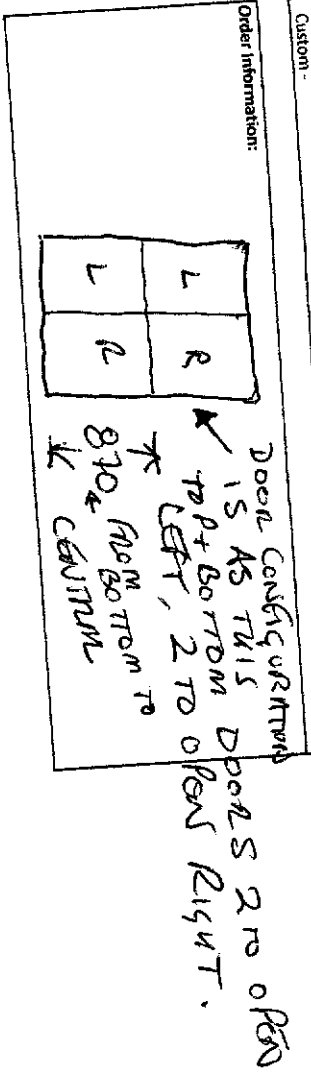 Custom -
Order Information:
L R
L R
DOOR CONFIGURATION
IS AS THIS
TOP + BOTTOM DOORS 2 TO OPEN
LEFT, 2 TO OPEN RIGHT.
870 FROM
BOTTOM TO
CENTRE